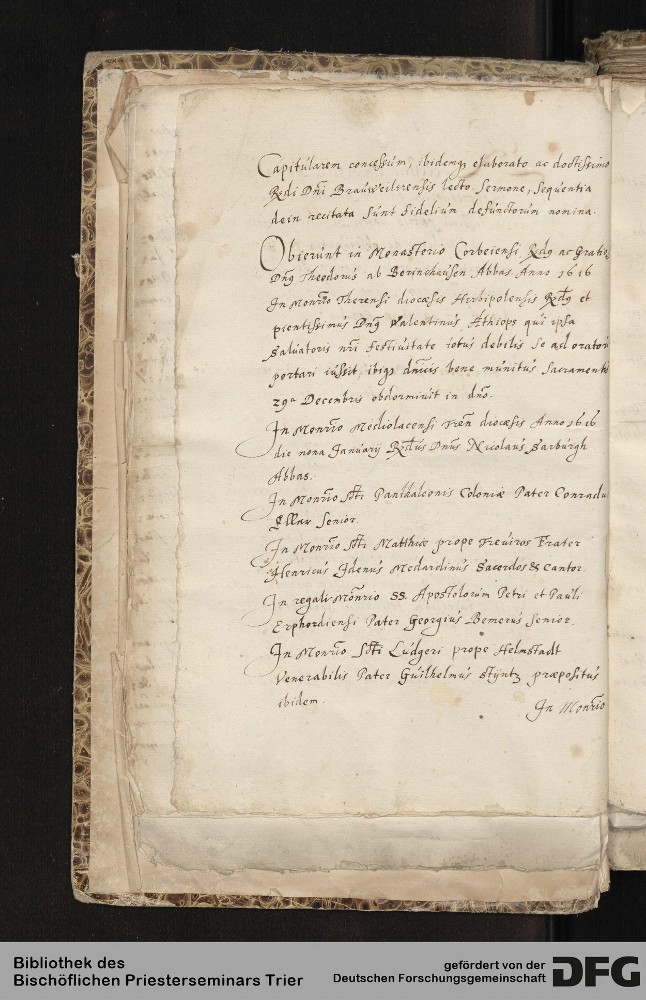 Capitularem concessum, ibidemq; elaborato ac doctissimo
Rdi Dni Brauweilerensis lecto sermone, sequentia
dein recitata sunt fidelium defunctorum nomina.
Obierunt in Monasterio Corbeiensi Rdq ac Gratio,
Dnq Theodorus ab Beringhausen Abbas Anno 1616
In Monrio Therensi diocæsis Herbipolensis Rdq et
pientissimus Dnq Valentinus Æthiops qui ipsa
Salvatoris nri festivitate totus debilis se ad orator
portari iussit, ibiq; dnicis bene munitus Sacramentis
29a Decembris obdormivit in dno.
In Monrio Mediolacensi Tren diocæsis Anno 1616
die nona Januarij Rdus Dnus Nicolaus Sarburgh
Abbas.
In Monrio Sti Panthaleonis Coloniæ Pater Conradu
Ellar Senior.
In Monrio Sti Matthiæ prope Treviros Frater
Henricus Idenus Medardinus Sacerdos & Cantor
In regali Monrio SS. Apostolorum Petri et Pauli
Erphordiensi Pater Georgius Bemerus Senior.
In Monrio Sti Ludgeri prope Helmstadt
Venerabilis Pater Guilhelmus Stÿntz præpositus
ibidem.
In Monrio
Bibliothek des
Bischöflichen Priesterseminars Trier
gefördert von der
Deutschen Forschungsgemeinschaft
DFG